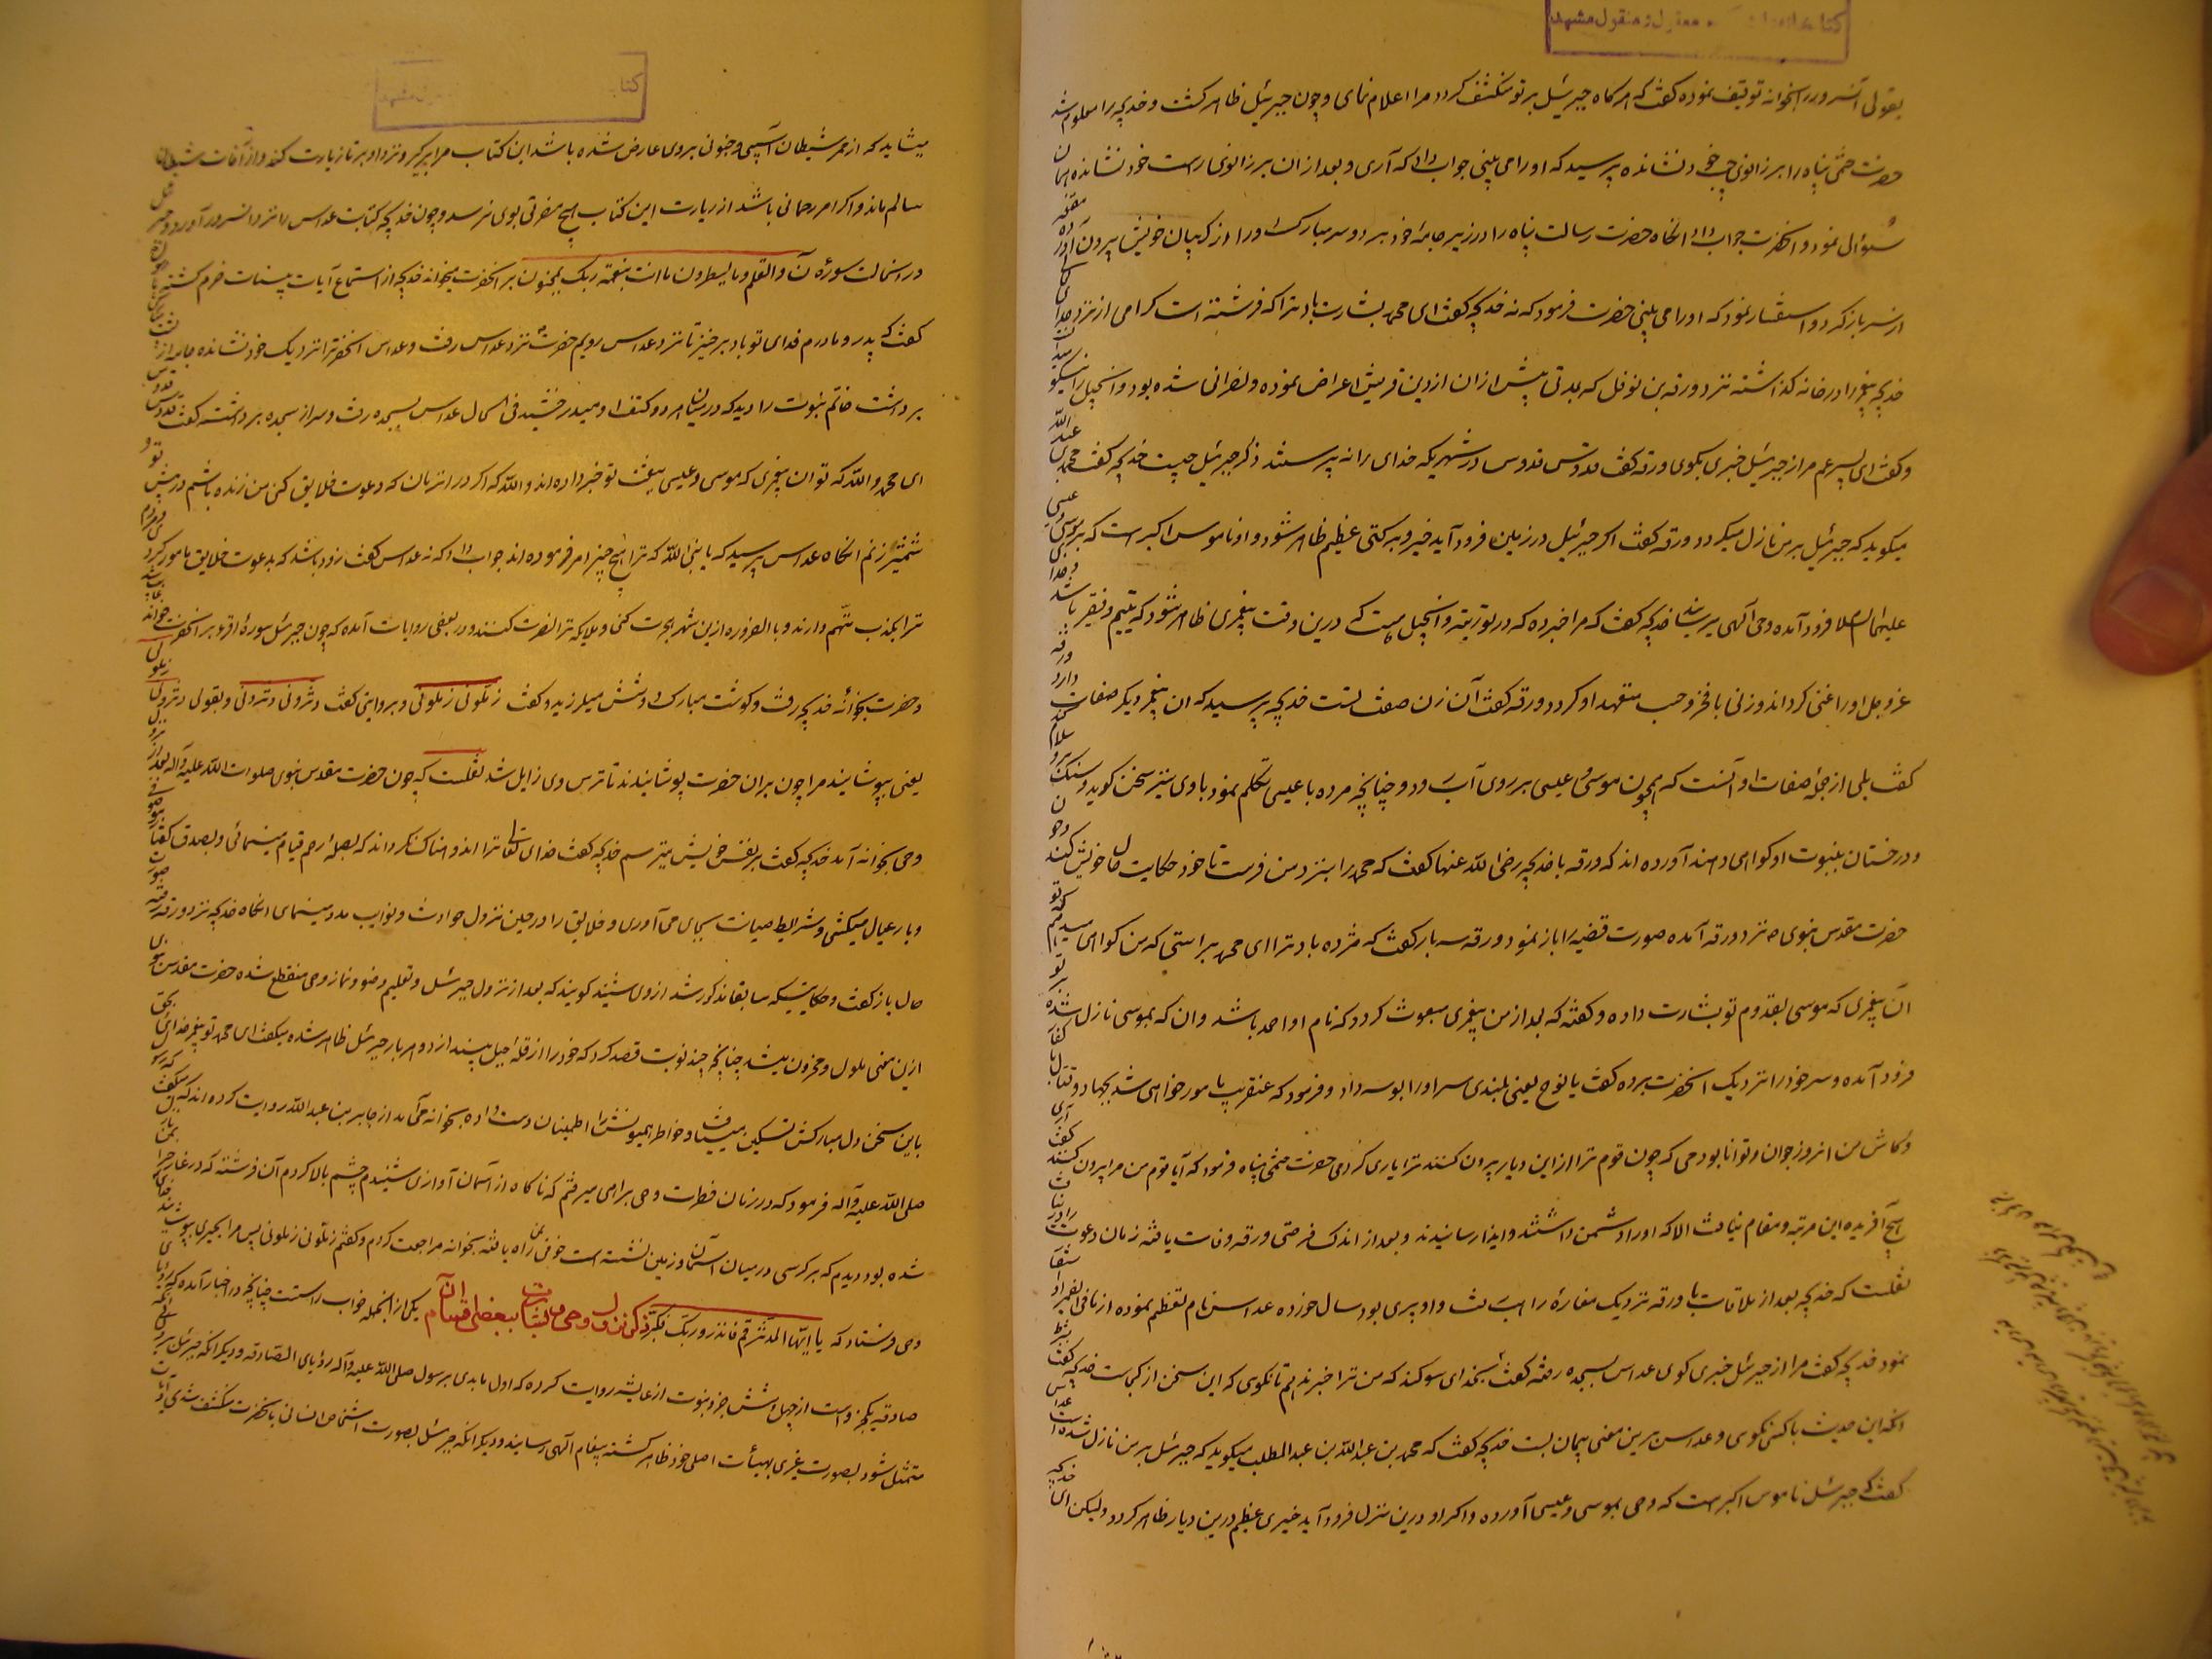 بقولی آنسرور را بخانه توقیف نموده گفت که هرگاه جبرئیل بر تو منکشف گردد مرا اعلام نمای و چون جبرئیل ظاهر گشت و خدیجه را معلوم شد
حضرت ختمی پناه را بر زانوی چپ خود نشانده پرسید که او را می بینی جواب داد که آری و بعد از ان بر زانوی راست خود نشانده همان
سئوال نمود و آنحضرت جواب داد انگاه حضرت رسالت پناه را در زیر جامهٔ خود برد و سر مبارک او را از گریبان خویش بیرون آورده مقنعه
از سر باز کرد و استفسار نمود که او را می بینی حضرت فرمود که نه خدیجه گفت ای محمد بشارت باد ترا که فرشته است گرامی از نزد خدای
خدیجه پیغمبر را در خانه گذاشته نزد ورقه بن نوفل که بمدتی پیش ازان از دین قریش اعراض نموده و نصرانی شده بود و انجیل را نیکو
و گفت ای پسر عم مرا از جبرئیل خبری بگوی ورقه گفت قدوس قدوس در شهریکه خدای را نه پرستند ذکر جبرئیل چیست خدیجه گفت محمد بن عبدالله
میگوید که جبرئیل بر من نازل میگردد ورقه گفت اگر جبرئیل در زمین فرود آید خیر و برکتی عظیم ظاهر شود و او ناموس اکبر است که بر موسی و عیسی
علیهما السلام فرود آمده وحی آلهی میرساند خدیجه گفت که مرا خبر ده که در توریته و انجیل هست که درین وقت پیغمبری ظاهر شود که یتیم و فقیر باشد و خدا
عز و جل او را غنی گرداند و زنی با فخر و حسب متعهد او گردد ورقه گفت آن زن صفت تست خدیجه پرسید که ان پیغمبر دیگر صفات دارد ورقه
گفت بلی از جملهٔ صفات او آنست که همچون موسی و عیسی بر روی آب رود و چنانچه مرده با عیسی تکلم نمود با وی نیز سخن گوید و سنگ برو سلام کند
و درختان بنبوت او گواهی دهند آورده اند که ورقه با خدیجه رضی الله عنها گفت که محمد را بنزد من فرست تا خود حکایت حال خویش کند و چون
حضرت مقدس نبوی ص نزد ورقه آمده صورت قضیه را باز نمود ورقه سه بار گفت که مژده باد ترا ای محمد براستی که من گواهی میدهم که تو
آن پیغمبری که موسی بقدوم تو بشارت داده و گفته که بعد از من پیغمبری مبعوث گردد که نام او احمد باشد و ان که بموسی نازل شده بر تو
فرود آمده و سر خود را نزدیک آنحضرت برده گفت یا نوح یعنی بلندی سر او را بوسه داد و فرمود که عنقریب مامور خواهی شد بجهاد و قتال با کفار
و کاش من امروز جوان و توانا بودمی که چون قوم ترا ازین دیار بیرون کنند ترا یاری کردمی حضرت ختمی پناه فرمود که آیا قوم من مرا بیرون کنند گفت آری
هیچ آفریده این مرتبه و مقام نیافت الا که او را دشمن داشتند و ایذا رسانیدند و بعد از اندک فرصتی ورقه وفات یافته زمان دعوت را در نیافت
نقلست که خدیجه بعد از ملاقات با ورقه نزدیک مغارهٔ راهب شد و او پیری بود سال خورده عداس نام تعظیم نموده
نمود خدیجه گفت مرا از جبرئیل خبری گوی عداس بسجده رفته گفت بخدای سوگند که من ترا خبر ندهم تا نگویی که این سخن از کجاست خدیجه گفت بشرط
آنکه این حدیث با کسی نگوی و عداس برین معنی پیمان بست خدیجه گفت که محمد بن عبدالله بن عبدالمطلب میگوید که جبرئیل بر من نازل شده است عداس
گفت که جبرئیل ناموس اکبرست که وحی بموسی و عیسی آورده و اگر او درین منزل فرود آید خیری عظیم درین دیار ظاهر گردد و لیکن ای خدیجه
میشاید که از ممر شیطان آسیبی و جنونی بروی عارض شده باشد این کتاب مرا بر گیر و نزد او بر تا زیارت کند و از آفات شیطان
سالم ماند و اگر امر رحمانی باشد از زیارت این کتاب هیچ مضرتی بوی نرسد و چون خدیجه کتابت عداس را نزد آنسرور آورد و جبرئیل
در انحالت سورهٔ ن والقلم و ما یسطرون ما انت بنعمة ربک بمجنون بر آنحضرت میخواند خدیجه از استماع آیات بینات خرم گشته
گفت که پدر و مادرم فدای تو باد برخیز تا نزد عداس رویم حضرت نزد عداس رفت و عداس آنحضرت را نزدیک خود نشانده جامه از
برداشت خاتم نبوت را دید که در میان هر دو کتف او میدرخشید فی الحال عداس بسجده رفت و سر از سجده برداشته گفت قدوس قدوس
ای محمد والله که تو ان پیغمبری که موسی و عیسی ببعثت تو خبر داده اند والله که اگر در ان زمان که دعوت خلایق کنی من زنده باشم در پیش تو
شمشیر زنم انگاه عداس پرسید که یا نبی الله که ترا هیچ چیز امر فرموده اند جواب داد که نه عداس گفت زود باشد که بدعوت خلایق مامور گردی و مردم
ترا بکذب متهم دارند و بالضروره ازین شهر هجرت کنی و ملایکه ترا نصرت کنند و در بعضی روایات آمده که چون جبرئیل سورهٔ اقرء بر آنحضرت خواند
و حضرت بخانهٔ خدیجه رفت و گوشت مبارک دوشش میلرزید و گفت زملونی زملونی و بروایتی گفت دثرونی دثرونی و بقولی
یعنی بپوشانید مرا چون بران حضرت پوشانیدند تا ترس وی زایل شد نقلست که چون حضرت مقدس نبوی صلوات الله علیه و آله بعد از نزول
وحی بخانه آمد خدیجه گفت بر نفس خویش میترسم خدیجه گفت خدای تعالی ترا اندوهناک نگرداند که بصلهٔ رحم قیام مینمائی و بصدق گفتار
و بار عیال میکشی و شرایط صیانت بجای می آوری و خلایق را در حین نزول حوادث و نوایب مدد مینمای انگاه خدیجه نزد ورقه رفته
حال باز گفت و حکایتیکه سابقا مذکور شد از وی شنید گویند که بعد از نزول جبرئیل و تعلیم وضو و نماز وحی منقطع شده حضرت مقدس نبوی
ازین معنی ملول و محزون میشد چنانچه چند نوبت قصد کرد که خود را از قلهٔ جبل بیندازد و هر بار جبرئیل ظاهر شده میگفت ای محمد تو پیغمبر خدای بحق
باین سخن دل مبارکش تسکین مییافت و خاطر همیونش را اطمینان دست داده بخانه می آمد از جابر بن عبدالله روایت کرده اند که رسول
صلی الله علیه و آله فرمود که در زمان فطرت وحی براهی میرفتم که ناگاه از آسمان آوازی شنیدم چشم بالا کردم آن فرشته که در غار حرا
شده بود دیدم که بر کرسی در میان آسمان و زمین نشسته است خوفی بمن راه یافته بخانه مراجعت کردم و گفتم زملونی زملونی پس مرا بچیزی بپوشیدند
وحی فرستاد که یا ایها المدثر قم فانذر و ربک فکبر ذکر نزول وحی و بیان بعضی اقسام آن یکی از انجمله خواب راست چنانچه در اخبار آمده که رؤیای
صادقه یکجزو است از چهل و شش جزو نبوت از عایشه روایت کرده که اول ما بدی برسول صلی الله علیه و آله رؤیای الصادقه و دیگر انکه جبرئیل
متمثل شود بصورت غیری بهیأت اصلی خود ظاهر گشته پیغام آلهی رساند و دیگر انکه جبرئیل بصورت اشخاص انسانی بآنحضرت منکشف شدی